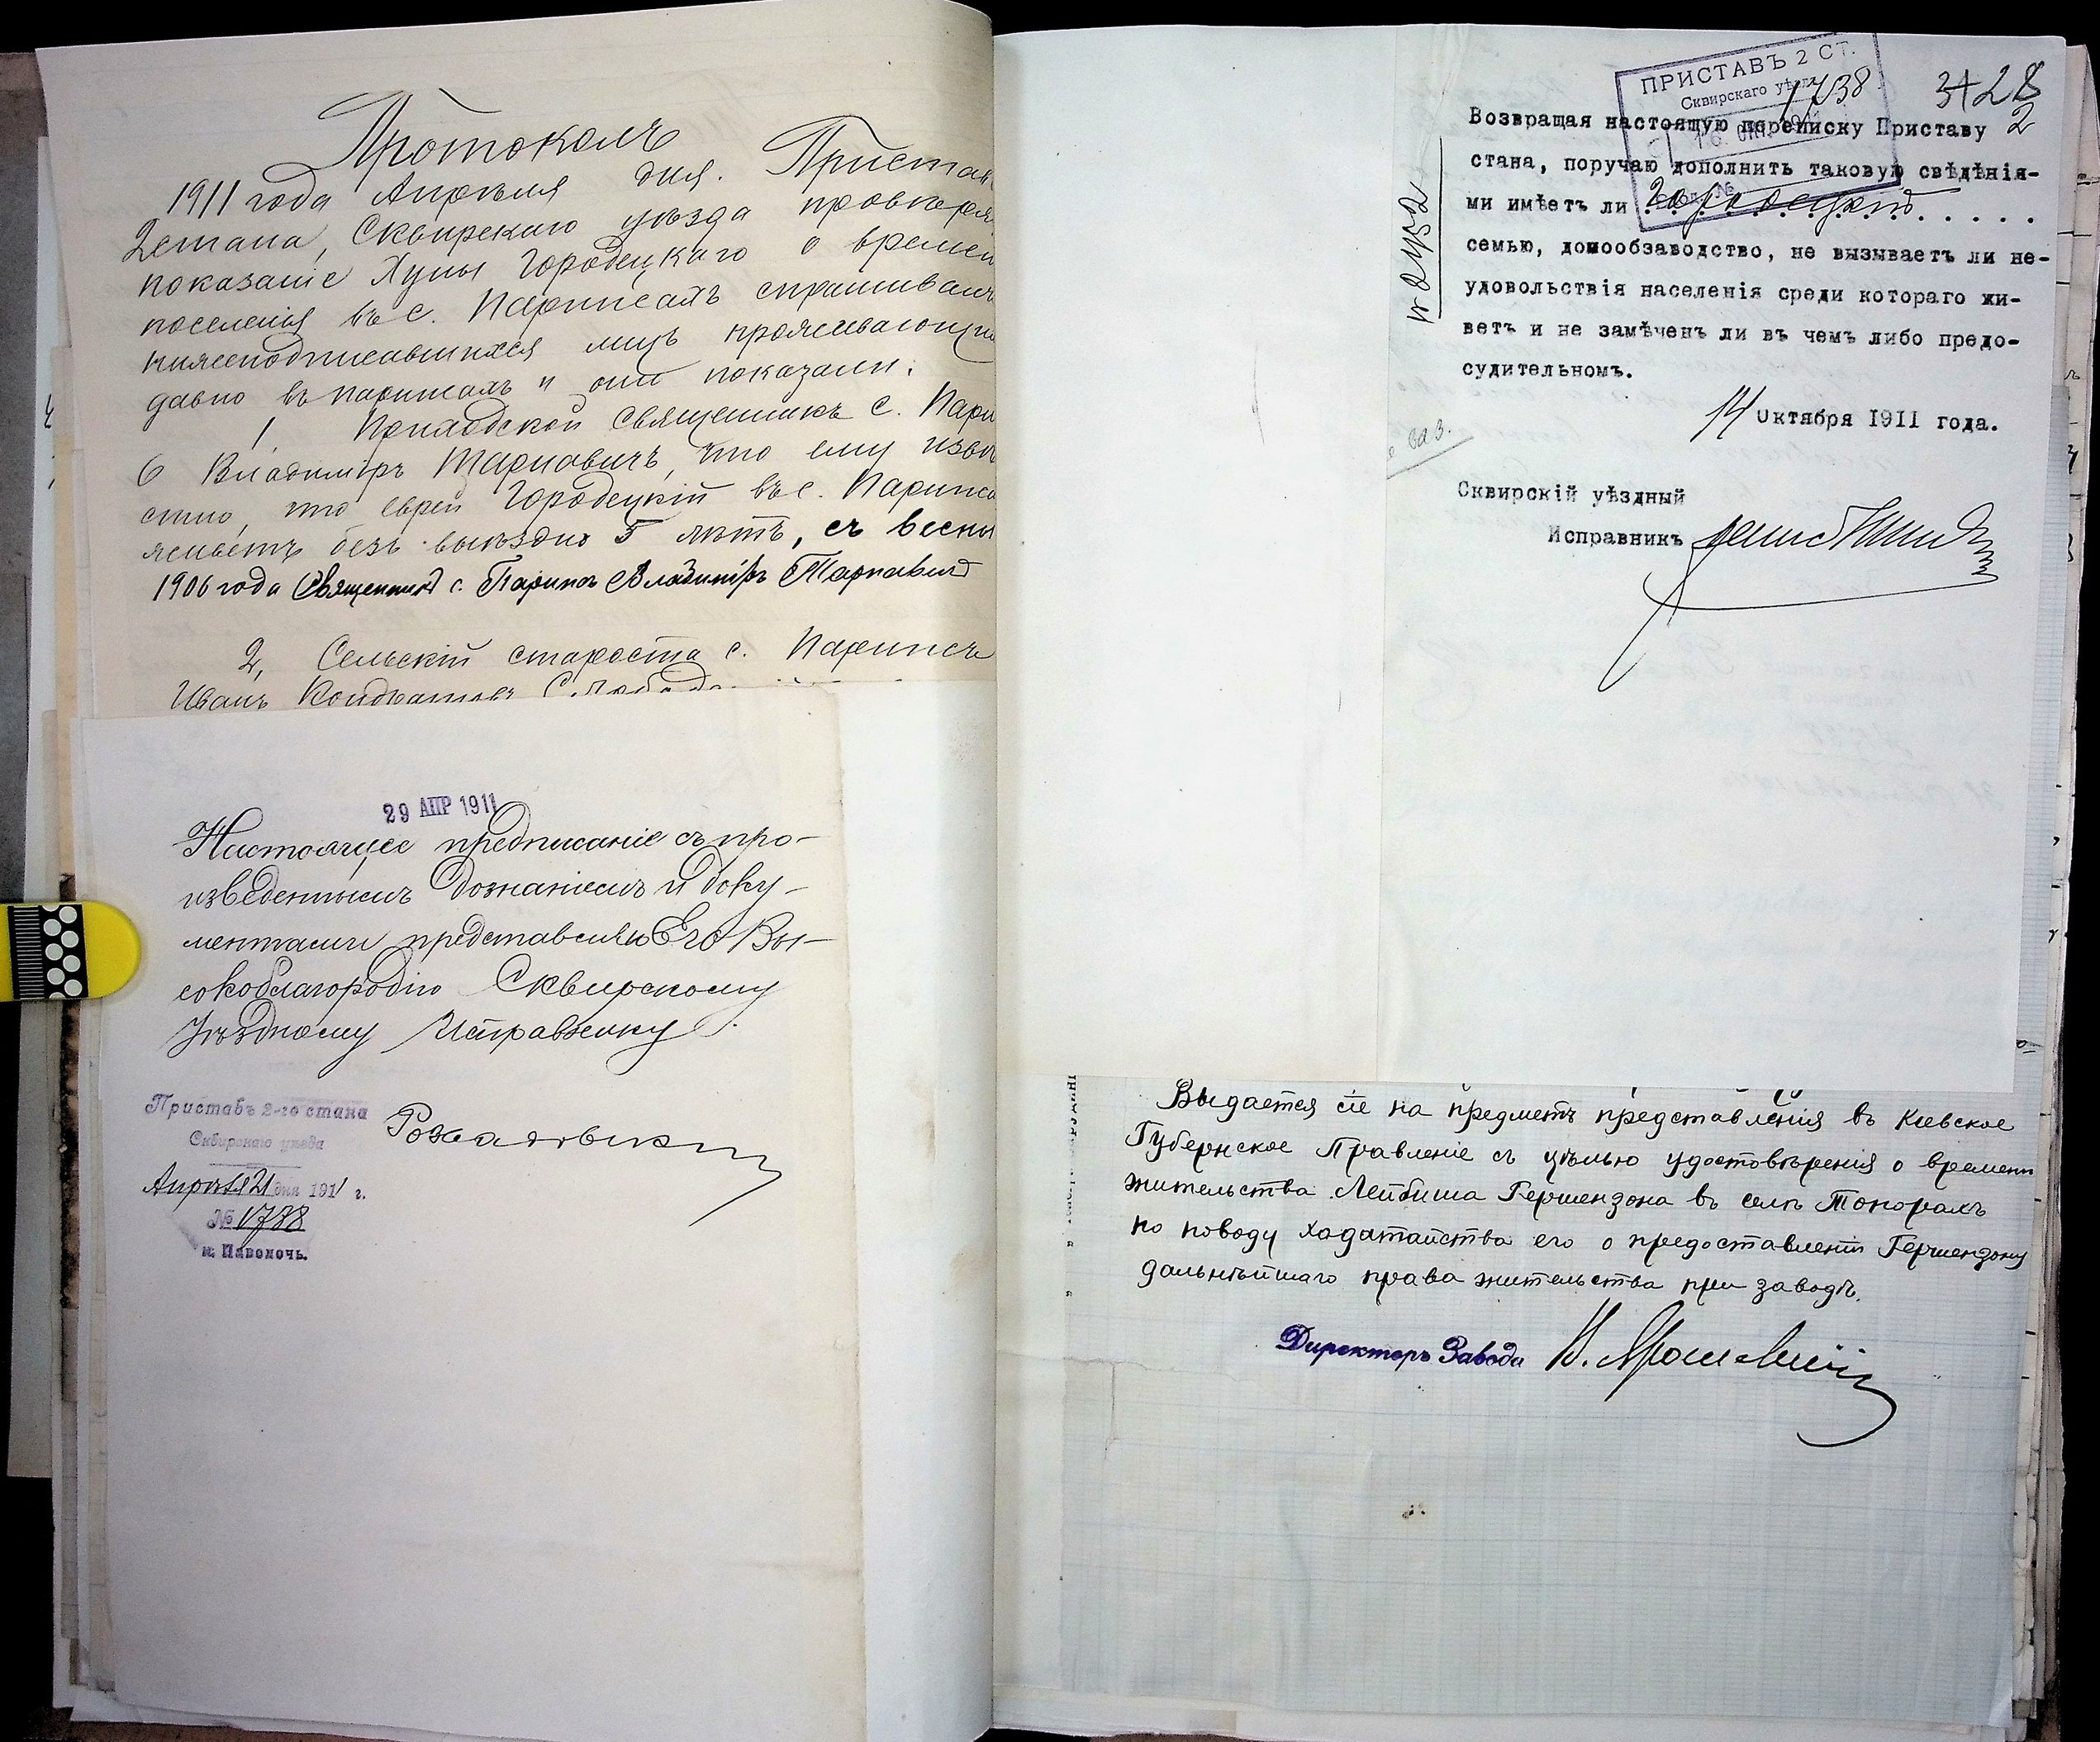 Протоколъ
1911 года Апрѣля дня. Пристав
2 стана, Сквирскаго уѣзда провѣряя
показаніе Хуны Городецкаго о времени
поселенія въ с. Парипсахъ спрашивалъ
нижеподписавшихся лицъ проживающих
давно въ Парипсахъ и они показали:
1. Приходской Священникъ с. Пари
Владиміръ Тарнавичъ, что ему извѣ
стно, что еврей Городецкій въ с. Парипса
живетъ безъ выѣздно 5 лѣтъ, съ весны
1906 года Священникъ с. Парипсъ Владиміръ
2, Сельскій староста с. Парипсъ
Иванъ Кондратовъ
29 АПР 1911
Настоящее предписаніе съ про-
изведеннымъ дознаніемъ и доку-
ментами представляю Его Вы-
сокоблагородію Сквирскому
Уѣздному Исправнику.
Приставъ 2-го стана
Сквирскаго уѣзда
Апрѣля 21 дня 1911 г.
№ 1788
м. Паволочь.
ПРИСТАВЪ 2 СТ.
Сквирскаго уѣзда
1738
3428
Возвращая настоящую переписку Приставу 2
стана, поручаю дополнить таковую свѣдѣнія-
ми имѣетъ ли Городецкій.....
семью, домообзаводство, не вызываетъ ли не-
удовольствія населенія среди котораго жи-
ветъ и не замѣченъ ли въ чемъ либо предо-
судительномъ.
14 Октября 1911 года.
Сквирскій уѣздный
Исправникъ
Выдается сіе на предметъ представленія въ Кіевское
Губернское Правленіе съ цѣлью удостовѣренія о времени
жительства Лейбиша Гершензона въ селѣ Топорахъ
по поводу ходатайства его о предоставленіи Гершензону
дальнѣйшаго права жительства при заводѣ.
Директоръ Завода